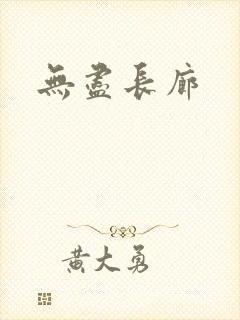 無盡長廊
黄大勇